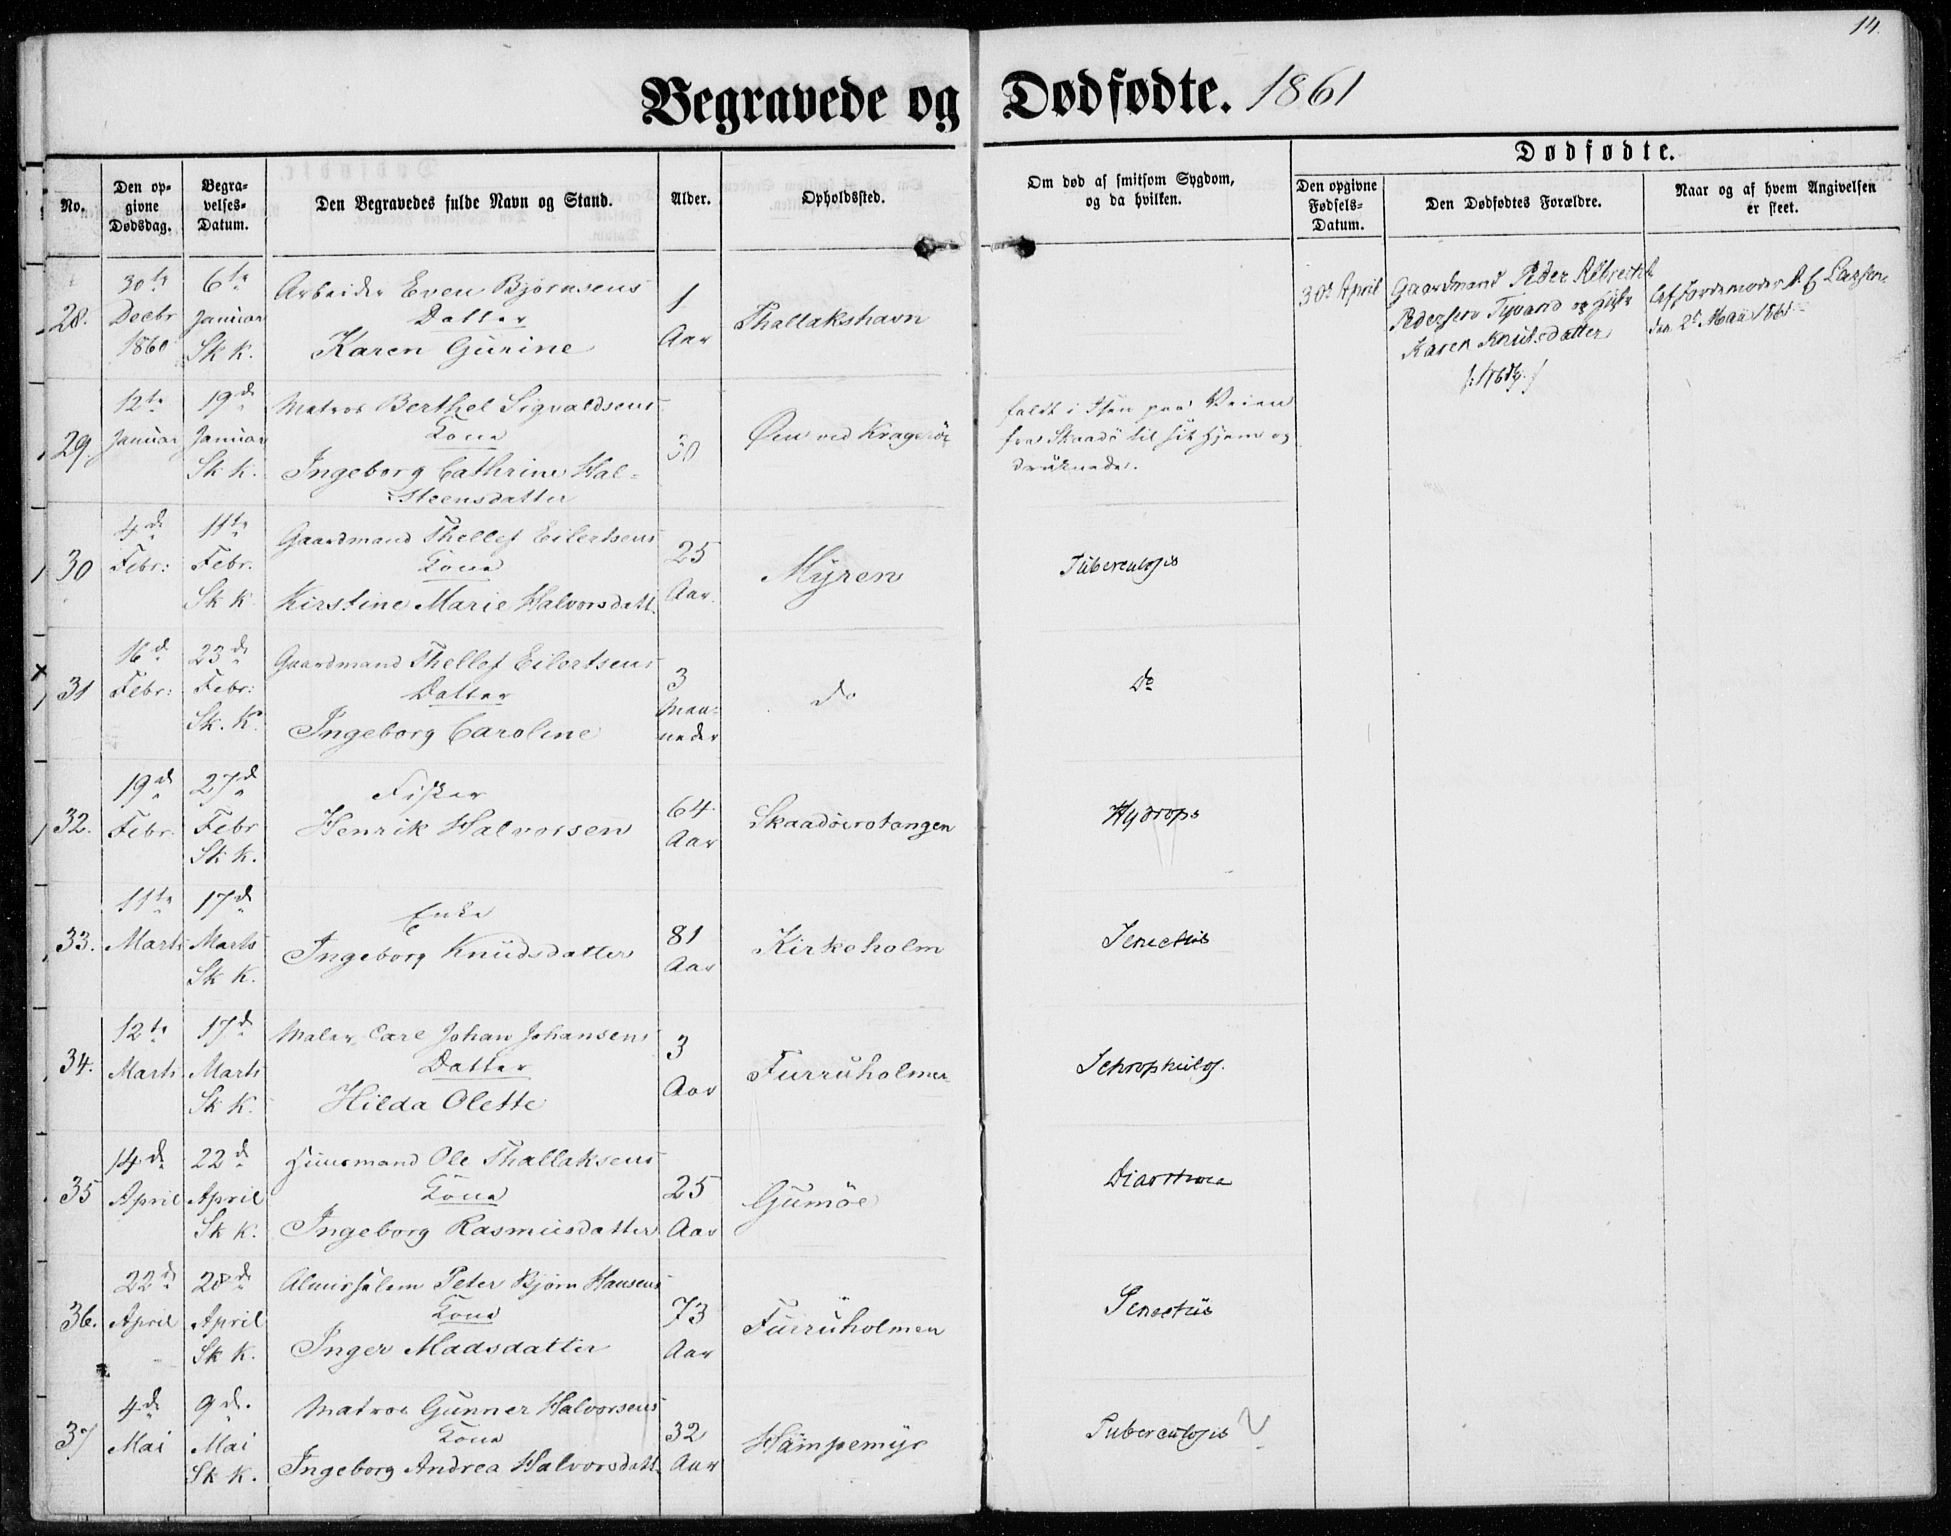 14.
Begravede og Dødfødte. 1861
No.
Den opgivne Dødsdag.
Begravelses-Datum.
Den Begravedes fulde Navn og Stand.
Alder.
Opholdssted.
Om død af smitsom Sygdom, og da hvilken.
Dødfødte.
Den opgivne Fødsels-Datum.
Den Dødfødtes Forældre.
Naar og af hvem Angivelsen er skeet.
28.
30te Decbr 1860
6te Januar Sk K.
Arbeider Even Bjørnsens
Datter
Karen Gurine
1 Aar
Thallakshavn
30te April
Gaardmand Peder
Pedersen Tyvand og
Karen Knutsdatter
Af Jordemoder Larsen
den 2d Mai 1861
29.
12te Januar
19de Januar Sk K.
Matros Berthel Sigvaldsens
Kone
Ingeborg Cathrine Hal-
steensdatter
30
Øen ved Kragerøe
faldt i Isen paa Veien
fra Skaadø til sit Hjem og
druknede.
30
4de Febr:
11te Febr. Sk K.
Gaardmand Thellef Eilertsens
Kone
Kirstine Marie Halvorsdatt.
25 Aar.
Myren
Tuberculosis
31
16de Febr:
23de Febr: Sk. K.
Gaardmand Thellef Eilertsens
Datter
Ingeborg Caroline
3 Maaneder
do
Do
32.
19de Febr.
27de Febr Sk K.
Fisker
Henrik Halvorsen
64 Aar
Skaadøerotangen
Hydrops
33.
11te Marts
17de Marts Sk K.
Enke
Ingeborg Knudsdatter
81 Aar
Kirkeholm
Senectus
34.
12te Marts
17de Marts Sk K.
Maler Carl Johan Johansens
Datter
Hilda Olette
3 Aar
Furruholmen
Schrophulos.
35
14de April
22de April Sk K.
Huusmand Ole Thallaksens
Kone
Ingeborg Rasmusdatter
25 Aar
Gumøe
Diarrhoea
36.
22de April
28de April Sk K.
Almisselem Peter Bjørn Hansens
Kone
Inger Madsdatter
73 Aar
Furruholmen
Senectus
37
4de Mai
9de. Mai Sk K.
Matros Gunner Halvorsens
Kone
Ingeborg Andrea Halvorsdatt.
32 Aar
Hampemyr
Tuberculosis